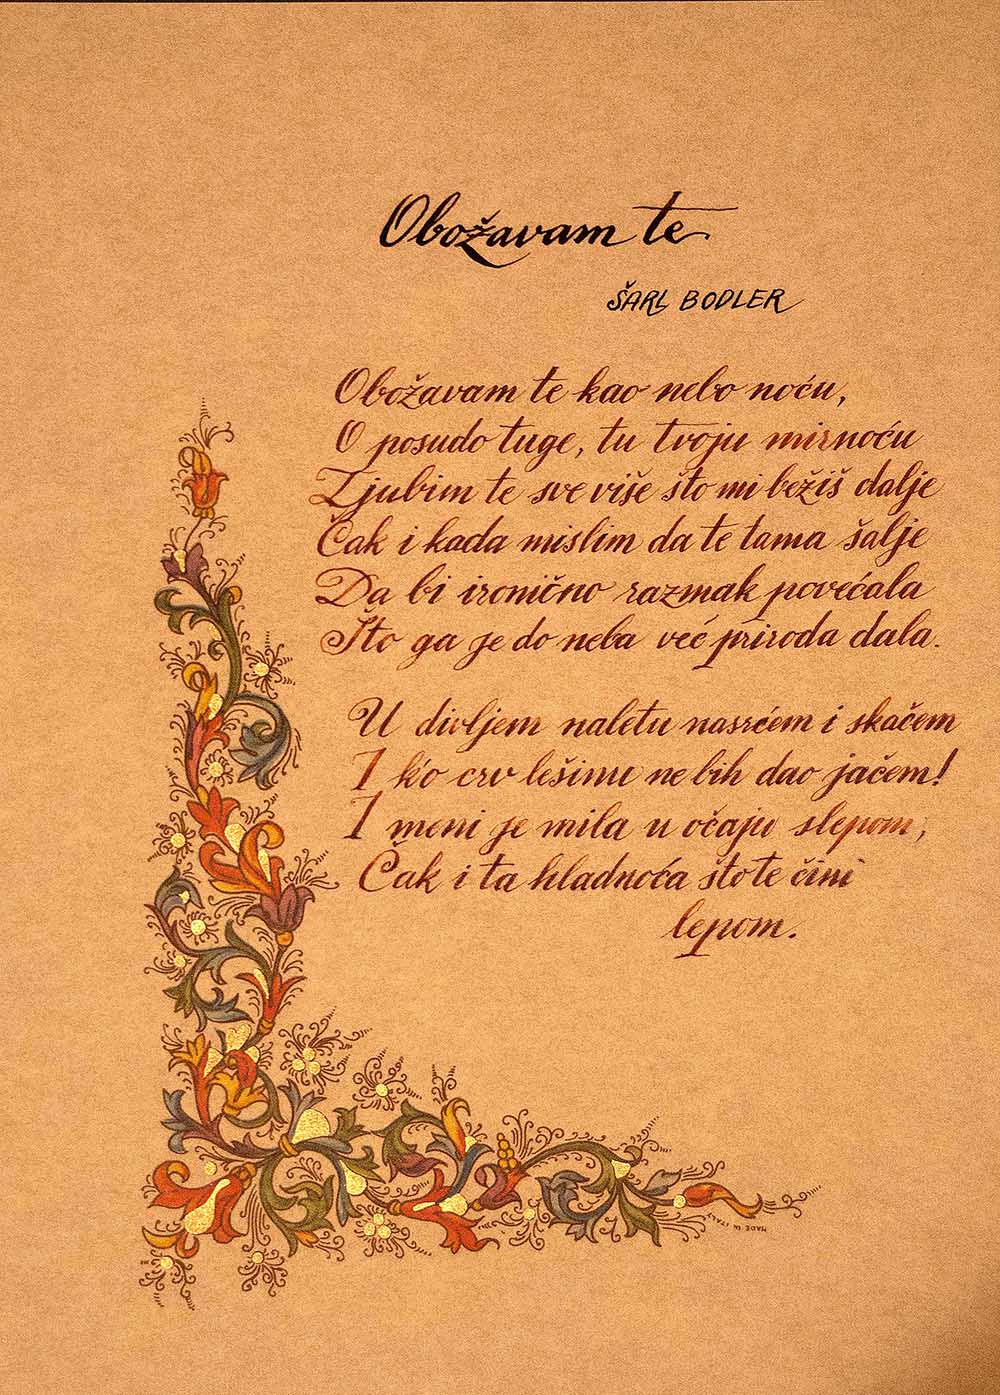 Obožavam te
ŠARL BODLER
Obožavam te kao nebo noću,
O posudo tuge, tu tvoju mirnoću
Ljubim te sve više što mi bežiš dalje
Čak i kada mislim da te tama šalje
Da bi ironično razmak povećala
Što ga je do neba već priroda dala.
U divljem naletu nasrćem i skačem
I k'o crv lešinu ne bih dao jačem!
I meni je mila u očaju slepom,
Čak i ta hladnoća što te čini
lepom.
MADE IN ITALY